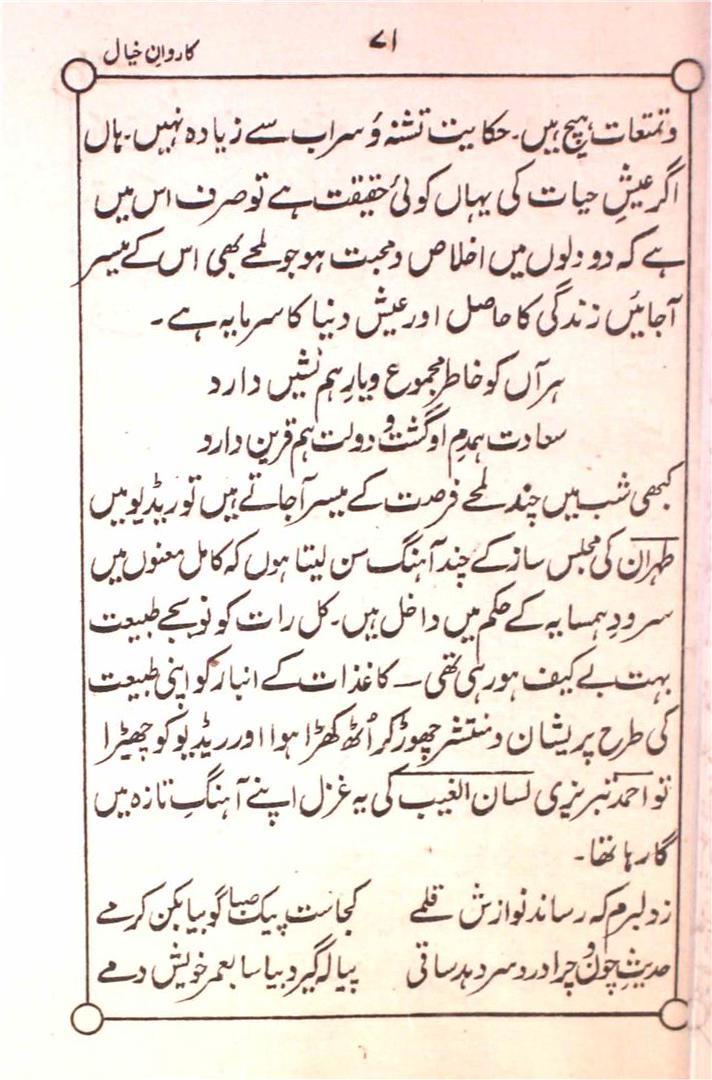 ۷۱
کاروانِ خیال
وتمتعات ہیچ ہیں۔ حکایت تشنہ وُ سراب سے زیادہ نہیں۔ ہاں
اگر عیشِ حیات کی یہاں کوئی حقیقت ہے تو صرف اس میں
ہے کہ دو دلوں میں اخلاص ومحبت ہو جو لمحے بھی اس کے میسر
آجائیں زندگی کا حاصل اور عیش دنیا کا سرمایہ ہے۔
ہر آں کو خاطر مجموع ویارِ ہم نشیں دارد
سعادت ہمدمِ او گشت و دولت ہم قرین دارد
کبھی شب میں چند لمحے فرصت کے میسر آجاتے ہیں تو ریڈیو میں
طہران کی مجلس ساز کے چند آہنگ سن لیتا ہوں کہ کامل معنوں میں
سرودِ ہمسایہ کے حکم میں داخل ہیں۔ کل رات کو نو بجے طبیعت
بہت بے کیف ہو رہی تھی ــ کاغذات کے انبار کو اپنی طبیعت
کی طرح پریشان ومنتشر چھوڑ کر اُٹھ کھڑا ہوا اور ریڈیو کو چھیڑا
تو احمد تبریزی لسان الغیب کی یہ غزل اپنے آہنگِ تازہ میں
گا رہا تھا۔
زدلبرم کہ رساند نوازش قلمے کجاست پیک صبا گو بیا بکن کرمے
حدیثِ چون و چرا درد سر دہد ساقی پیالہ گیر دبیا سا بعمر خویش دمے